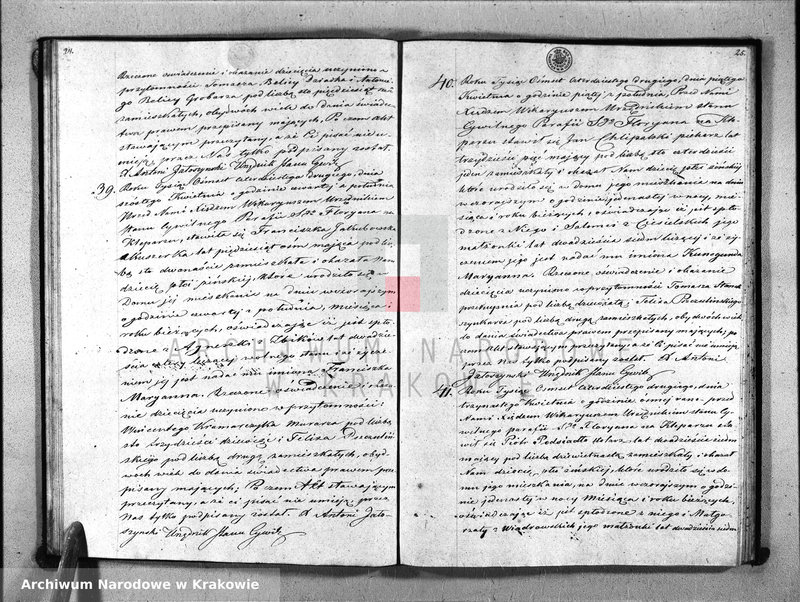 24.
Rzeczone oświadczenie i okazanie dziecięcia uczyniono w
przytomności Tomasza
zamieszkałych, obydwóch wiele do dania świade-
ctwa prawem przepisany mających. Po czem akt
stawającym przeczytany, a że Ci pisać nie u-
mieją przez Nas tylko podpisany został.
X Antoni Jatoszynski Urzędnik Stanu Cywil
39. Roku Tysiąc Ośmset Czterdziestego drugiego, dnia
Kwietnia o godzinie czwartej z południa
Przed Nami Xiędzem Wikaryuszem Urzędnikiem
Stanu Cywilnego Parafii S. Floryana na
Kleparzu, stawiła się Franciszka Jakubowska
Akuszerka lat pięćdziesiąt ośm mająca pod licz-
bą sto dwanaście zamieszkała i okazała Nam
dziecię płci żeńskiej, które urodziło się w
Domu jej mieszkania na dniu wczorajszym
o godzinie czwartej z południa, miesiąca i
roku bieżących, oświadczając iż jest spło-
dzone z Agnieszki
liczącej wolnego stanu i że życze-
niem jej jest nadać mu imiona Franciszka
Maryanna. Rzeczone oświadczenie i okaza-
nie dziecięcia uczyniono w przytomności
Wincentego Kramarczyka Murarza pod liczbą
sto trzydzieści dziewięć i Felixa
pod liczbą drugą zamieszkałych, obyd-
wóch wiek do dania świadectwa prawem prze-
pisany mających, Po czem Akt stawającym
przeczytany, a że ci pisać nie umieją przez
Nas tylko podpisany został. X Antoni Jato-
szynski Urzędnik Stanu Cywil
25.
40. Roku Tysiąc Ośmset Czterdziestego drugiego, dnia piątego
Kwietnia o godzinie piątej z południa, Przed Nami
Xiędzem Wikaryuszem Urzędnikiem stanu
Cywilnego Parafii S. Floryana na Kle-
parzu stawił się Jan Chlipalski piekarz lat
trzydzieści pięć mający pod liczbą sto czterdzieści
jeden zamieszkały i okazał Nam dziecię płci żeńskiej
które urodziło się w domu jego mieszkania na dniu
wczorajszym o godzinie jedenastej w nocy, mie-
siąca i roku bieżących, oświadczając iż jest spło-
dzone z Niego i Salomei z Ciesielskich jego
małżonki lat dwadzieścia siedm liczącej i że ży-
czeniem jego jest nadać mu imiona Kunegunda
Maryanna. Rzeczone oświadczenie i okazanie
dziecięcia uczyniono w przytomności Tomasza
przekupnia pod liczbą dziewiątą i Felixa
pod liczbą drugą zamieszkałych, obydwóch wiek
do dania świadectwa prawem przepisany mających, po
czem Akt stawającym przeczytany a że ci pisać nie umieją
przez nas tylko podpisany został. X Antoni
Jatoszynski Urzędnik Stanu Cywil
41. Roku Tysiąc Ośmset Czterdziestego drugiego, dnia
trzynastego Kwietnia o godzinie ósmej rano przed
Nami Xiędzem Wikaryuszem Urzędnikiem stanu Cy-
wilnego parafii S. Floryana na Kleparzu sta-
wił się Piotr Podsiadło lat dwadzieścia siedm
mający pod liczbą dziewiętnastą zamieszkały i okazał
Nam dziecię, płci żeńskiej, które urodziło się w do-
mu jego mieszkania, na dniu wczorajszym o godzi-
nie jedenastej w nocy Miesiąca i roku bieżących,
oświadczając iż jest spłodzone z niego i Małgo-
rzaty z Wiądrowskich jego małżonki lat dwadzieścia siedm
ARCHIWUM NARODOWE
W KRAKOWIE
Archiwum Narodowe w Krakowie